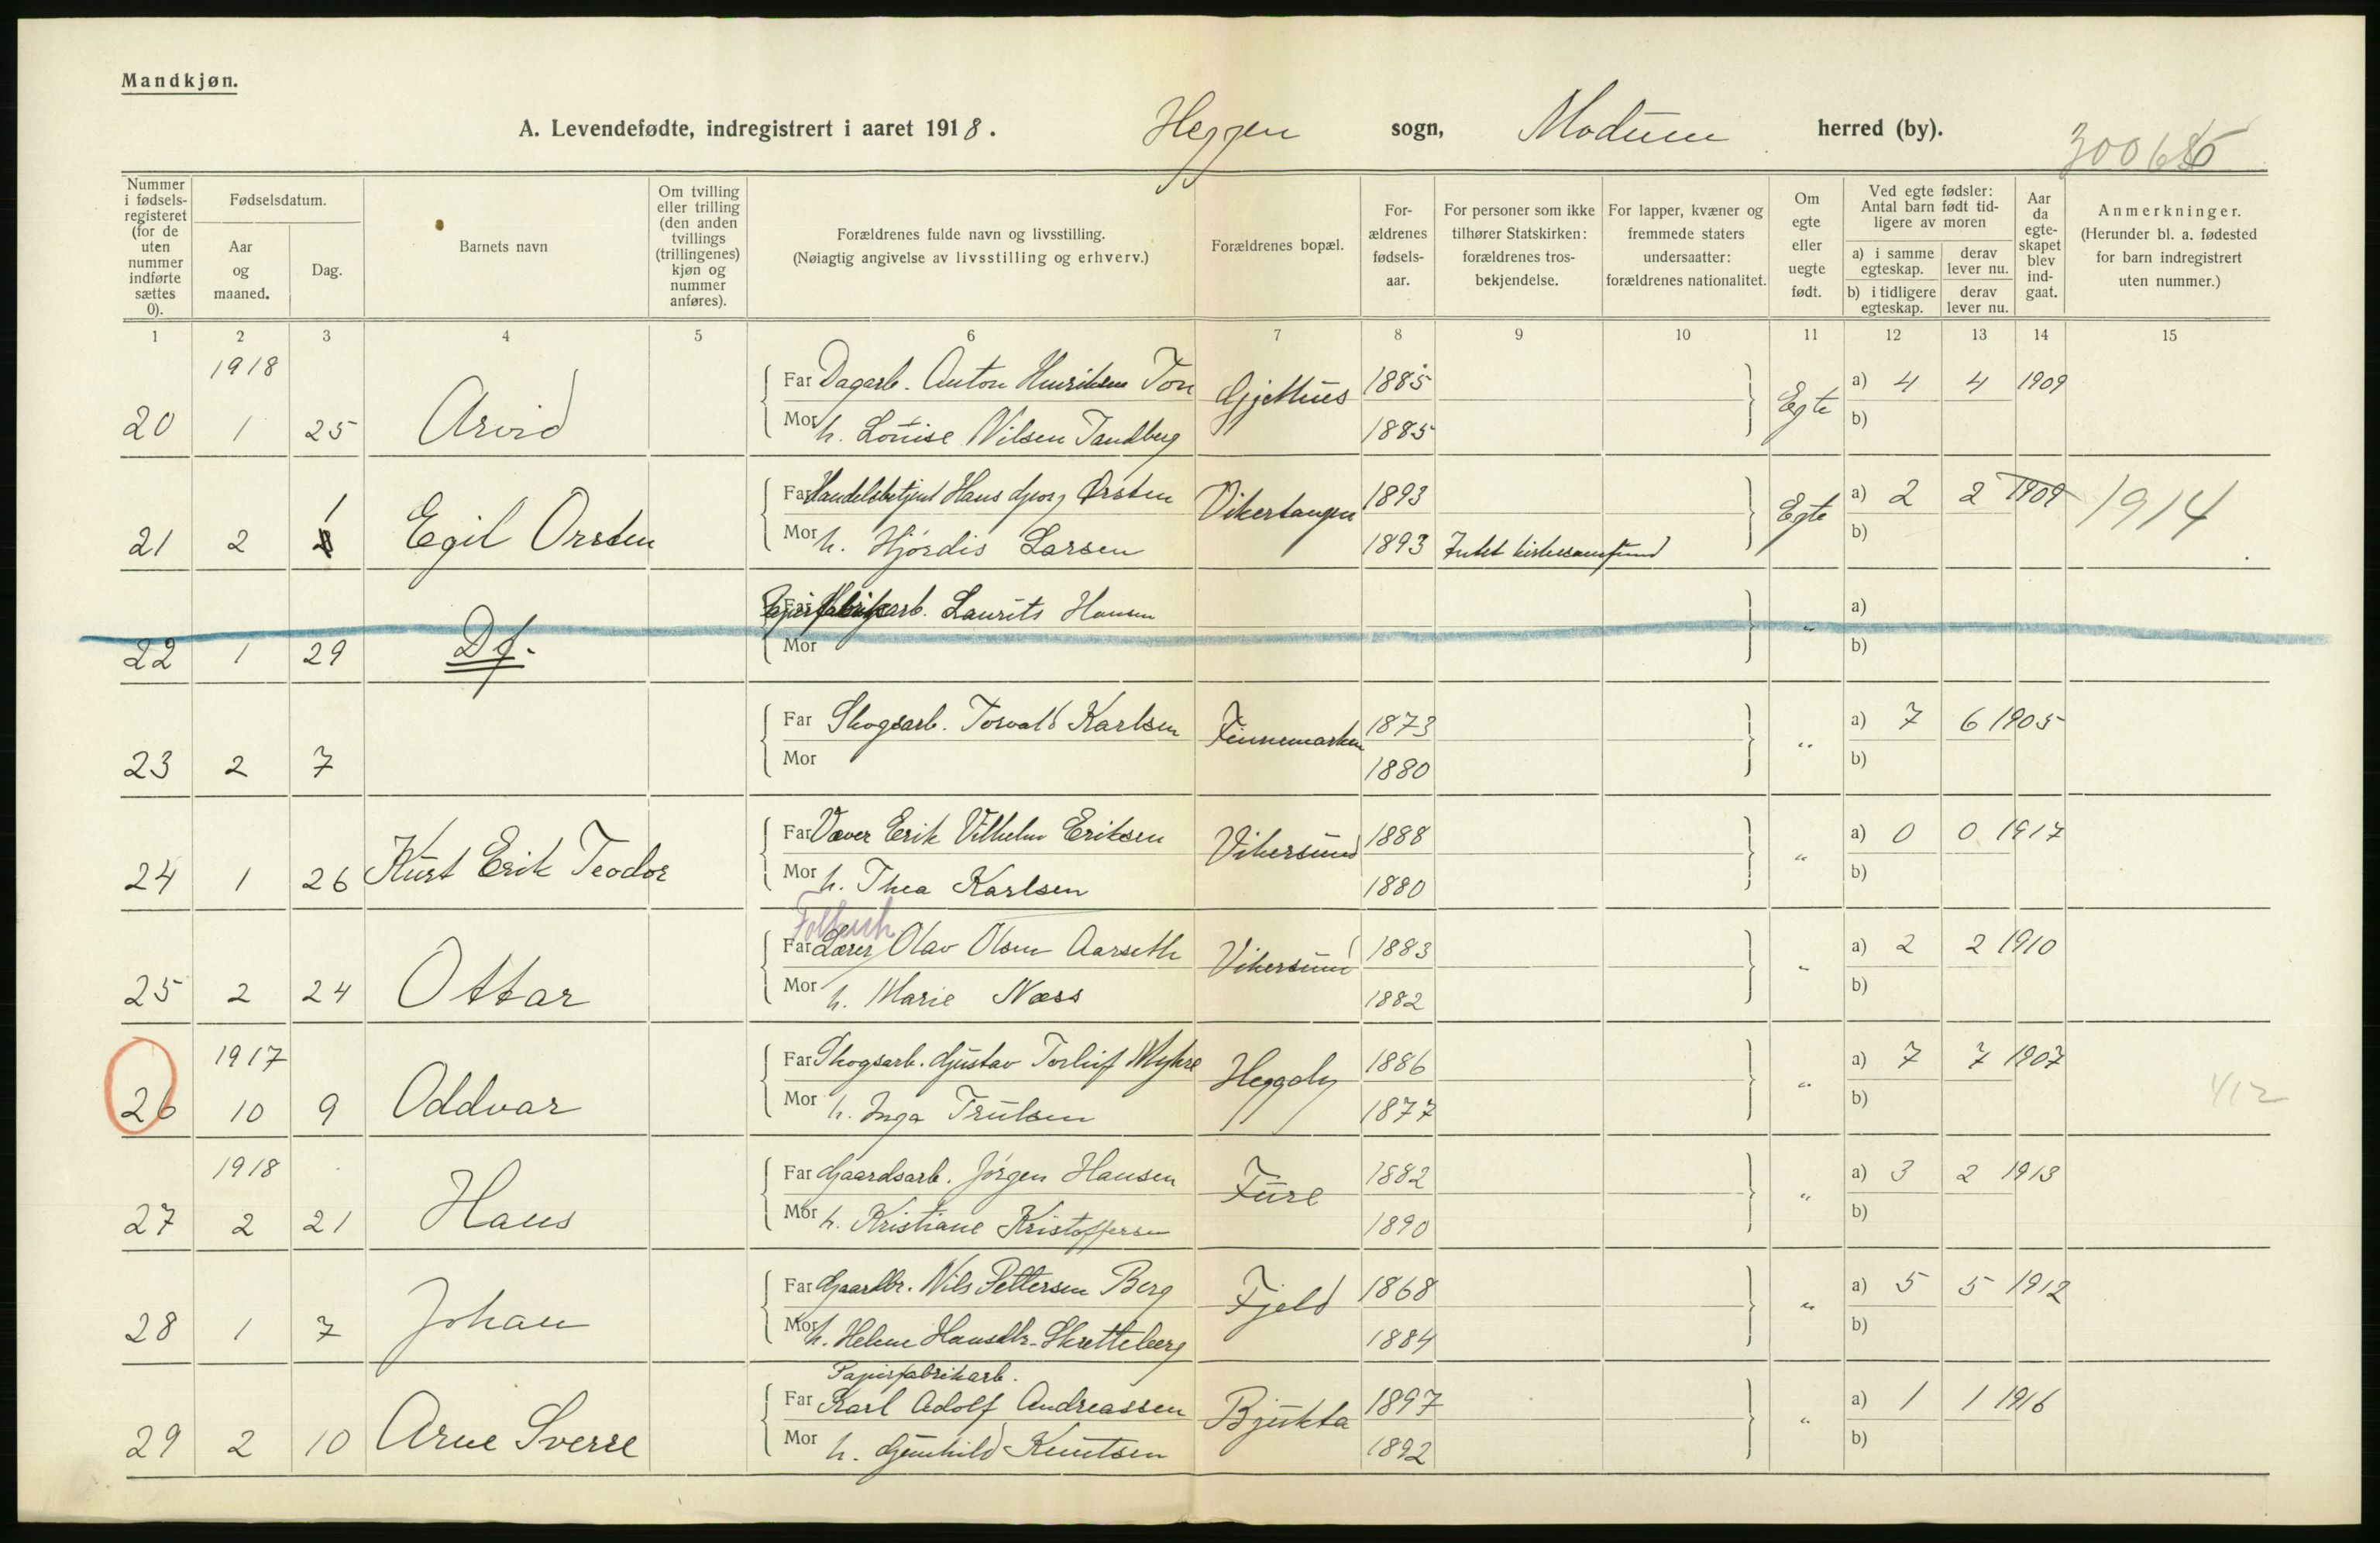 Mandkjøn.
A. Levendefødte, indregistrert i aaret 1918. Heggen sogn, Modum herred (by).
Nummer i fødsels-registeret (for de uten nummer indførte sættes 0).
Fødselsdatum.
Aar og maaned.
Dag.
Barnets navn
Om tvilling eller trilling (den anden tvillings (trillingenes) kjøn og nummer anføres).
Forældrenes fulde navn og livsstilling.
(Nøiagtig angivelse av livsstilling og erhverv.)
Forældrenes bopæl.
For-ældrenes fødsels-aar.
For personer som ikke tilhører Statskirken: forældrenes tros-bekjendelse.
For lapper, kvæner og fremmede staters undersaatter: forældrenes nationalitet.
Om egte eller uegte født.
Ved egte fødsler: Antal barn født tid-ligere av moren
a) i samme egteskap. derav lever nu.
b) i tidligere egteskap. derav lever nu.
Aar da egte-skapet blev ind-gaat.
Anmerkninger.
(Herunder bl. a. fødested for barn indregistrert uten nummer.)
1 2 3 4 5 6 7 8 9 10 11 12 13 14 15
1918
Far Dagarb. Anton Henriksen Ton Gjethus 1885 a) 4 4 1909
20 1 25 Arvid Mor h. Louise Nilsen Tandberg 1885 Egte b)
Far Handelsbetjent Hans Georg Ørsten Vikertangen 1893 a) 2 2 1909 1914
21 2 1 Egil Orsten Mor h. Hjørdis Larsen 1893 Intet kirkesamfund Egte b)
Far Papirfabrikarb. Laurits Hansen a)
22 1 29 Df. Mor „ b)
Far Skogsarb. Torvald Karlsen Finnemarken 1873 a) 7 6 1905
23 2 7 Mor 1880 „ b)
Far Væver Erik Vilhelm Eriksen Vikersund 1888 a) 0 0 1917
24 1 26 Kurt Erik Teodor Mor h. Thea Karlsen 1880 „ b)
Far Lærer Olav Olsen Aarseth Vikersund 1883 a) 2 2 1910
25 2 24 Ottar Mor h. Marie Næss 1882 „ b)
1917
Far Skogsarb. Gustav Torleif Myhre Heggaby 1886 a) 7 7 1907
26 10 9 Oddvar Mor h. Inga Trulsen 1877 „ b) 412
1918
Far Gaardsarb. Jørgen Hansen Fure 1882 a) 3 2 1913
27 2 21 Hans Mor h. Kristiane Kristoffersen 1890 „ b)
Far Gaardbr. Nils Pettersen Berg Fjeld 1868 a) 5 5 1912
28 1 7 Johan Mor h. Helene Hansdtr. Skretteberg 1884 „ b)
Papirfabrikarb.
Far Karl Adolf Andreassen Bjukta 1897 a) 1 1 1916
29 2 10 Arne Sverre Mor h. Gunhild Knutsen 1892 „ b)